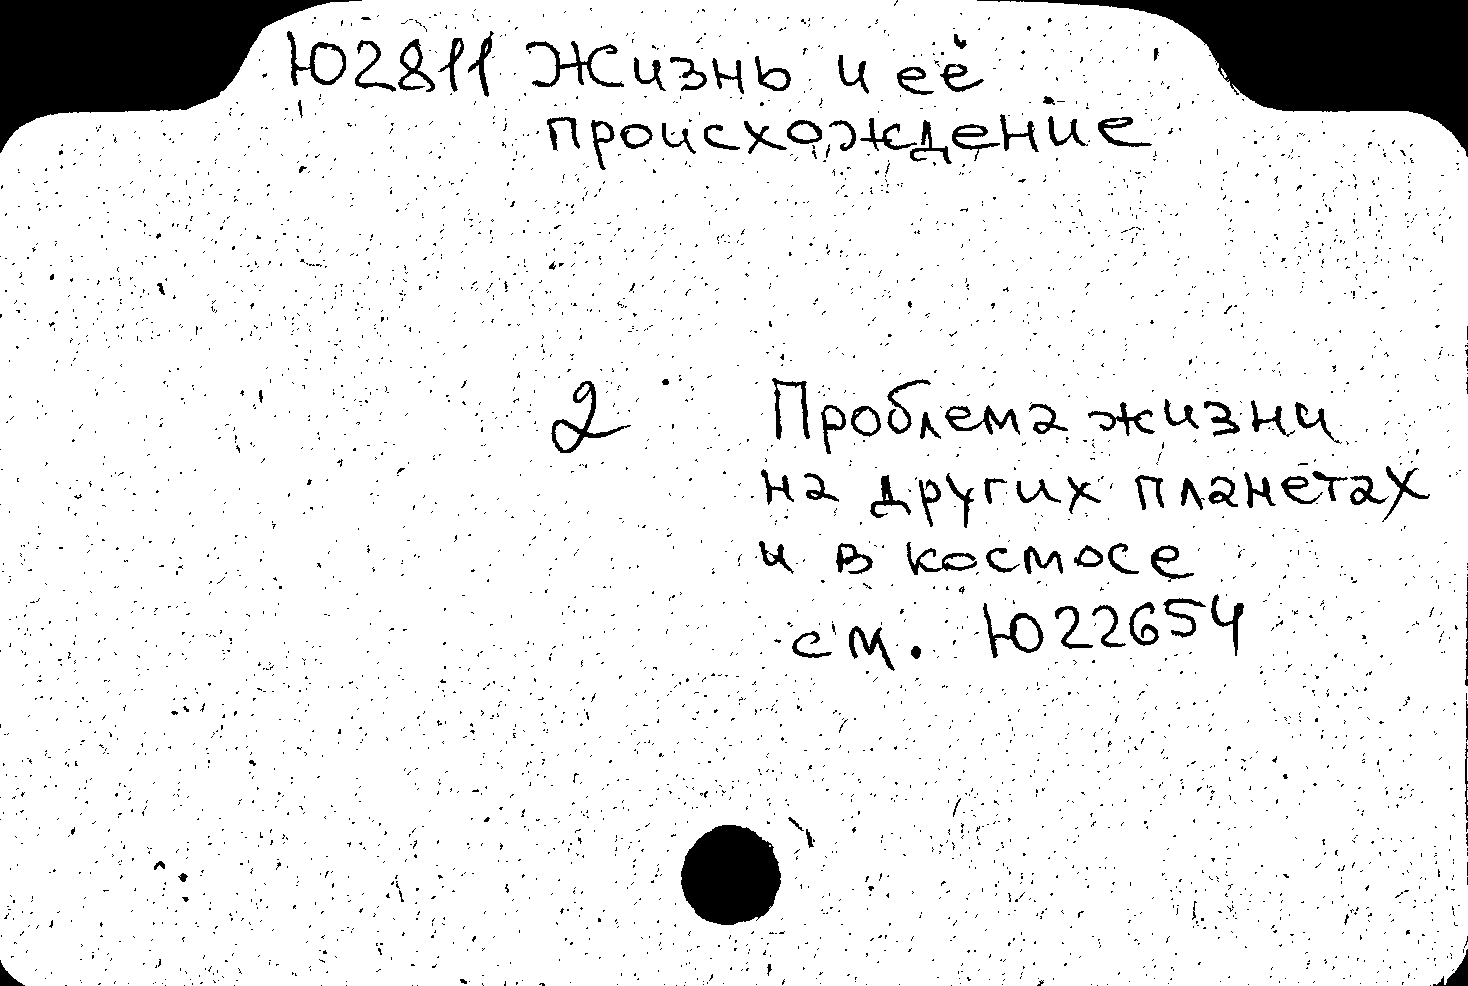 Ю2811 Жизнь и её
происхождение
2 Проблема жизни
на других планетах
и в космосе
см. Ю22654